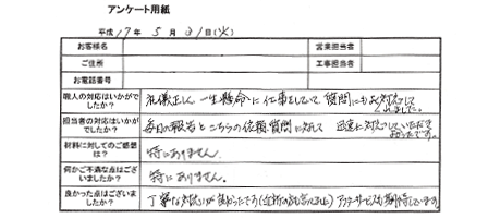 アンケート用紙
平成 17年 5月 31日(火)
お客様名 営業担当者
ご住所 工事担当者
お電話番号
職人の対応はいかがでしたか? 礼儀正しく、一生懸命に仕事をしていて 質問にも対応して
くれました。
担当者の対応はいかがでしたか? 毎日の報告とこちらの依頼、質問に対して 迅速に対応していただき
よかったです。
材料に対してのご感想は? 特にありません。
何かご不満な点はございましたか? 特にありません。
良かった点はございましたか? 丁寧な対応が良かったです アフターサービスも期待しています。